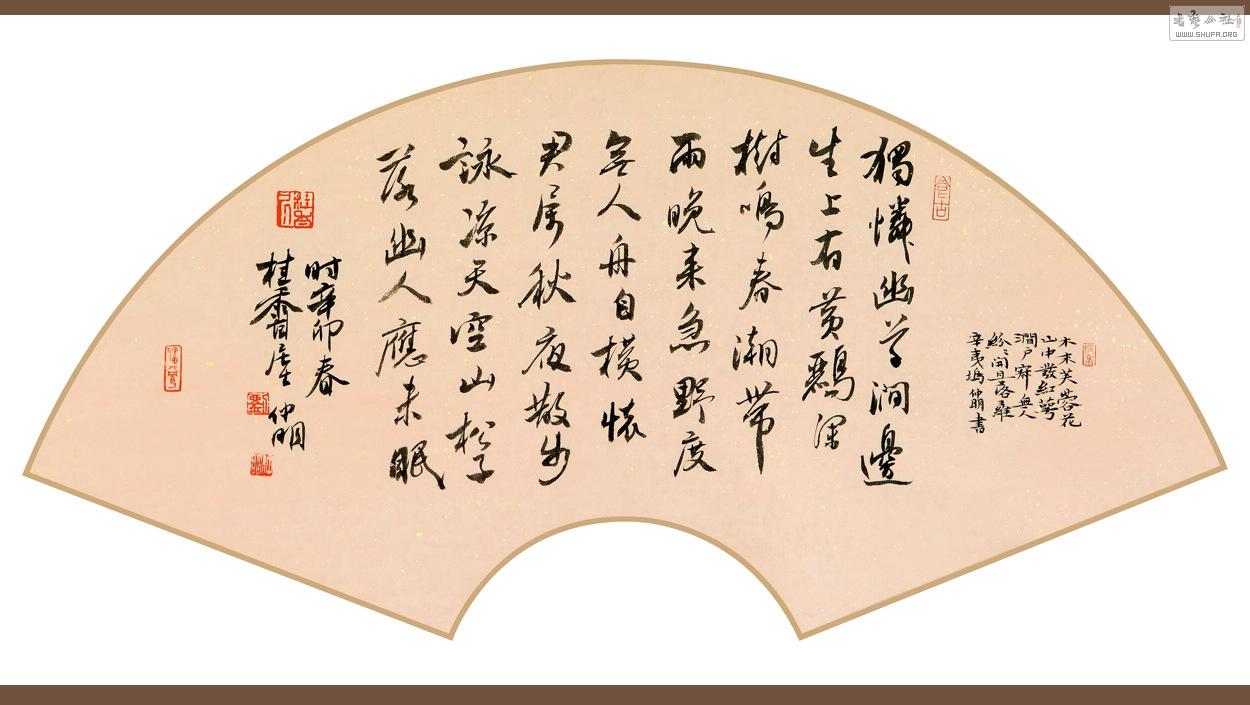 獨憐幽草澗邊
生上有黃鸝深
樹鳴春潮帶
雨晚来急野度
無人舟自橫懷
君屬秋夜散步
詠涼天空山松子
落幽人應未眠
时辛卯春
仲明
桂香
木末芙蓉花
山中發紅萼
澗戶寂無人
紛〻開且落
辛夷塢仲明書
書藝公社
WWW.SHUFA.ORG